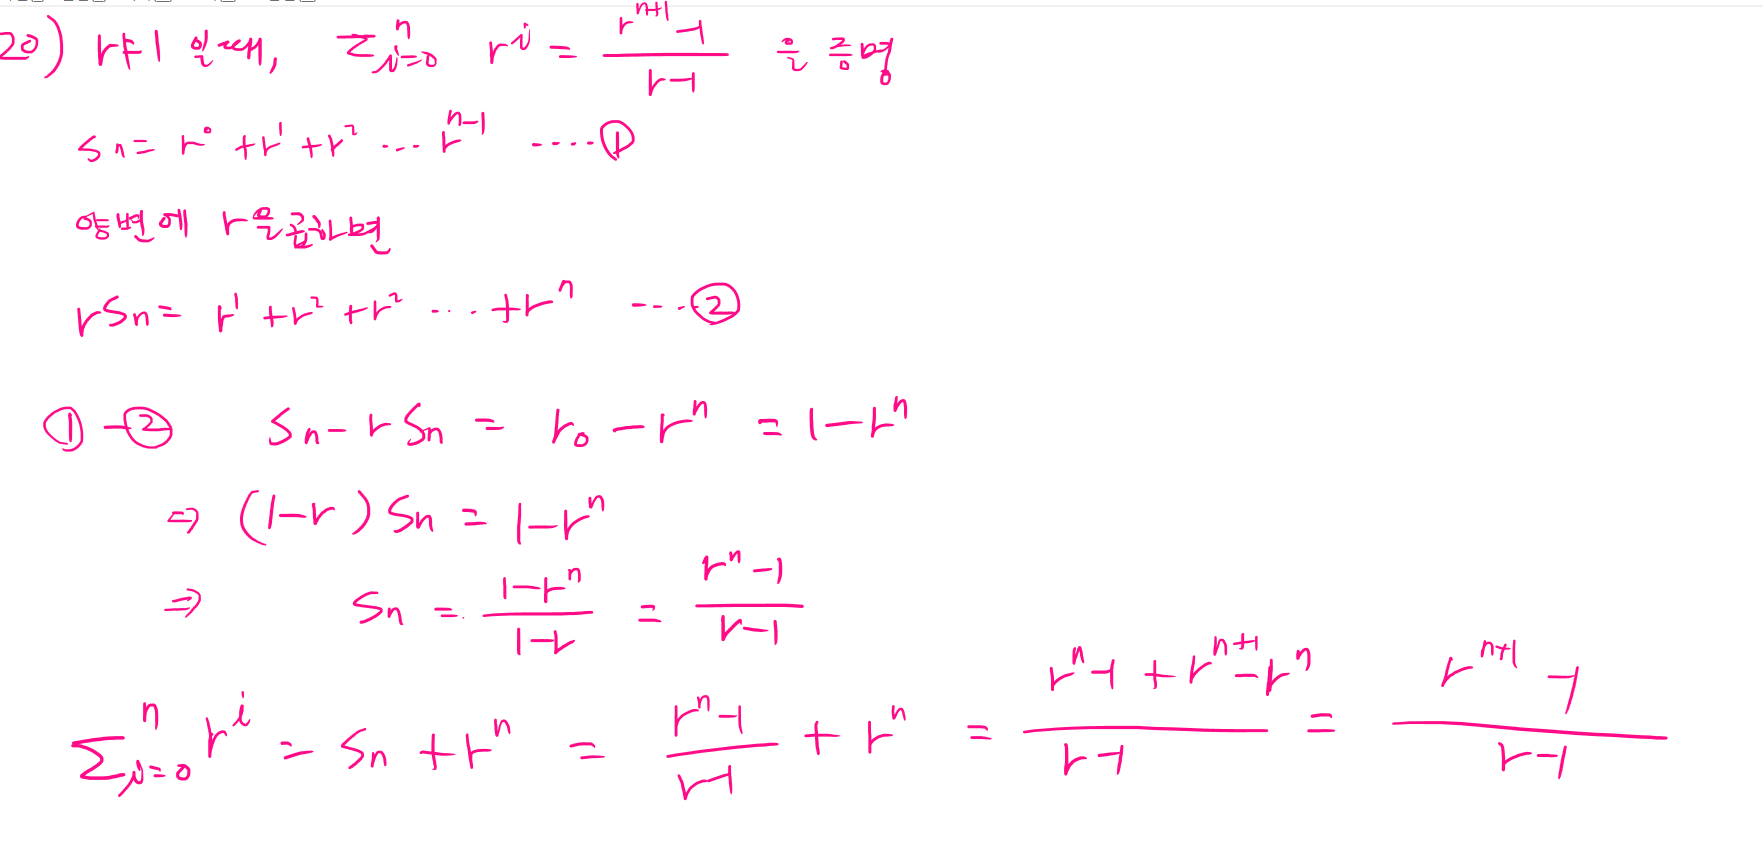 20) r≠1 일때, Σ_{i=0}^{n} r^i = (r^{n+1} -1)/(r-1) 을 증명
Sn = r^0 + r^1 + r^2 ... r^{n-1} ....①
양변에 r을곱하면
rSn = r^1 + r^2 + r^2 .... + r^n ....②
① - ② Sn - rSn = r_0 - r^n = 1 - r^n
⇒ (1-r) Sn = 1 - r^n
⇒ Sn = (1-r^n)/(1-r) = (r^n -1)/(r-1)
Σ_{i=0}^{n} r^i = Sn + r^n = (r^n -1)/(r-1) + r^n = (r^n -1 + r^{n+1} - r^n)/(r-1) = (r^{n+1} -1)/(r-1)